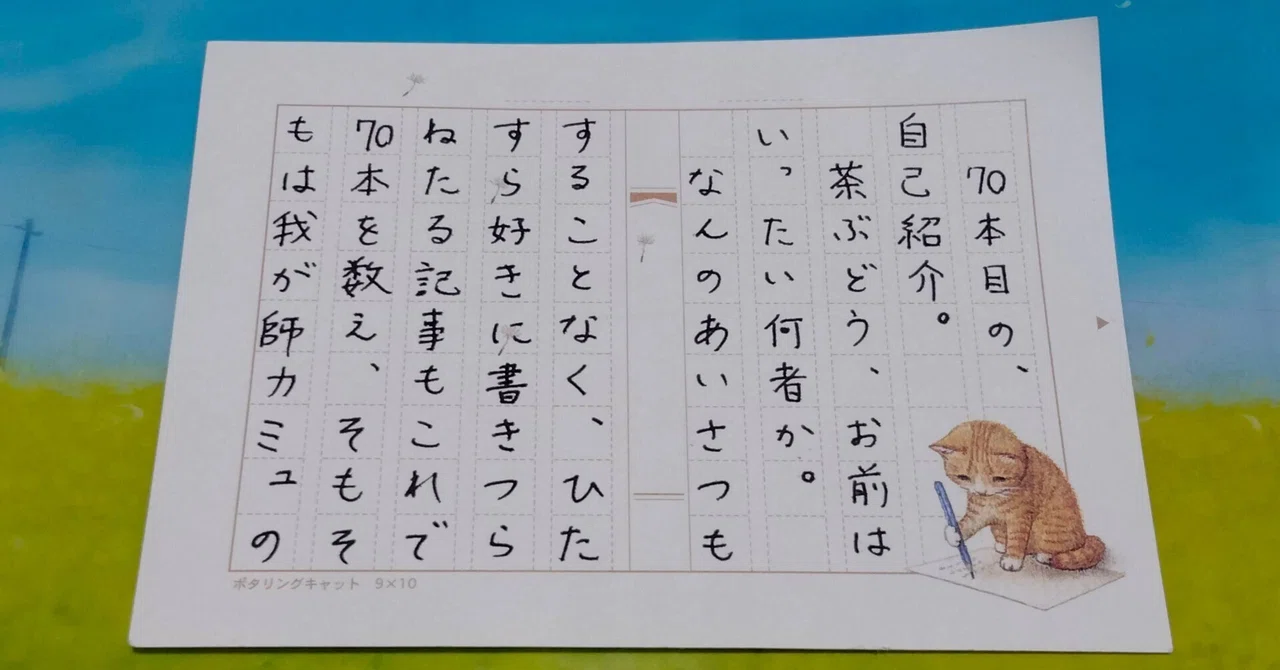 70本目の、
自己紹介。
茶ぶどう、お前は
いったい何者か。
なんのあいさつも
することなく、ひた
すら好きに書きつら
ねたる記事もこれで
70本を数え、そもそ
もは我が師カミュの
ポタリングキャット 9×10